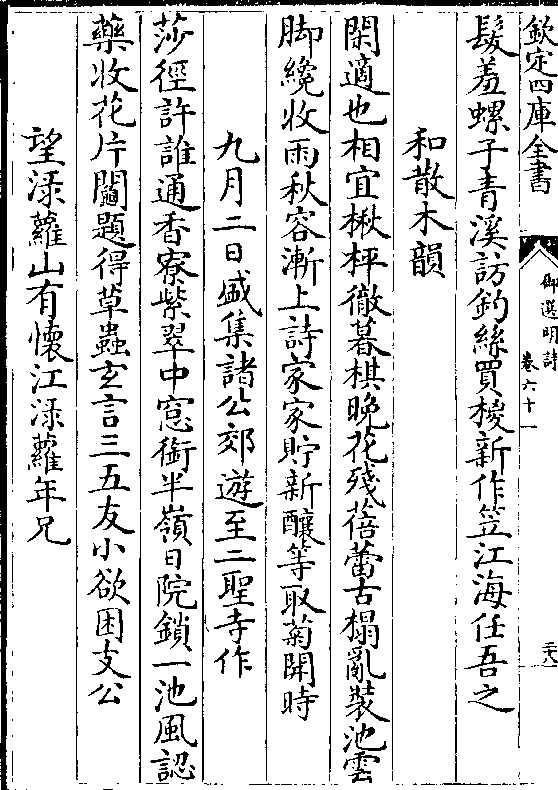 欽定四庫全書
御選明詩
卷六十一
三六
髮羞螺子青溪訪釣絲買椶新作笠江海任吾之
和散木韻
閑適也相宜楸枰徹暮棋晚花殘蓓蕾古榻亂裝池雲
脚纔收雨秋容漸上詩家家貯新釀等取菊開時
九月二日盛集諸公郊遊至二聖寺作
莎徑許誰通香寮紫翠中窓銜半嶺日院鎖一池風認
藥收花片鬮題得草蟲玄言三五友小欲困支公
望渌蘿山有懷江渌蘿年兄